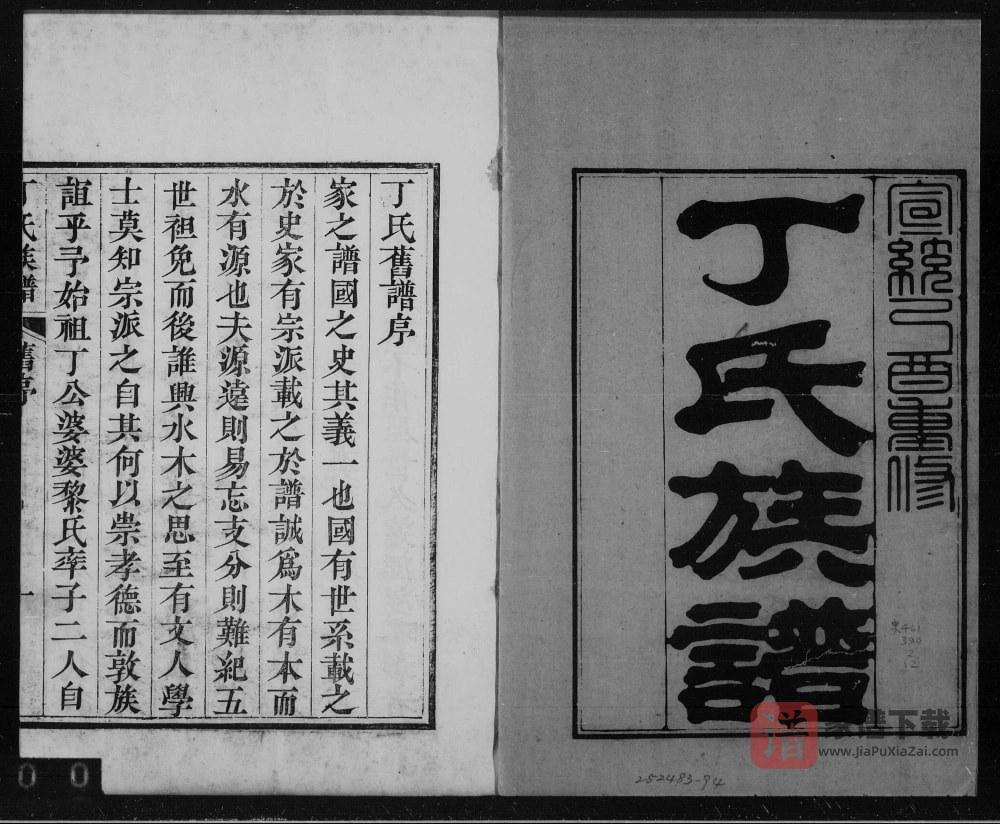 宣統己酉重修
丁氏族譜
丁氏舊譜序
家之譜國之史其義一也國有世系載之
於史家有宗派載之於譜誠爲木有本而
水有源也夫源遠則易忘支分則難紀五
世袒免而後誰興水木之思至有文人學
士莫知宗派之自其何以崇孝德而敦族
誼乎予始祖丁公婆婆黎氏率子二人自
丁氏族譜 舊序 一
家谱下载
www.JiaPuXiaZai.com
谱
252483-94
0 0